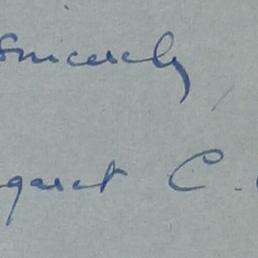 Sincerely
garet C.